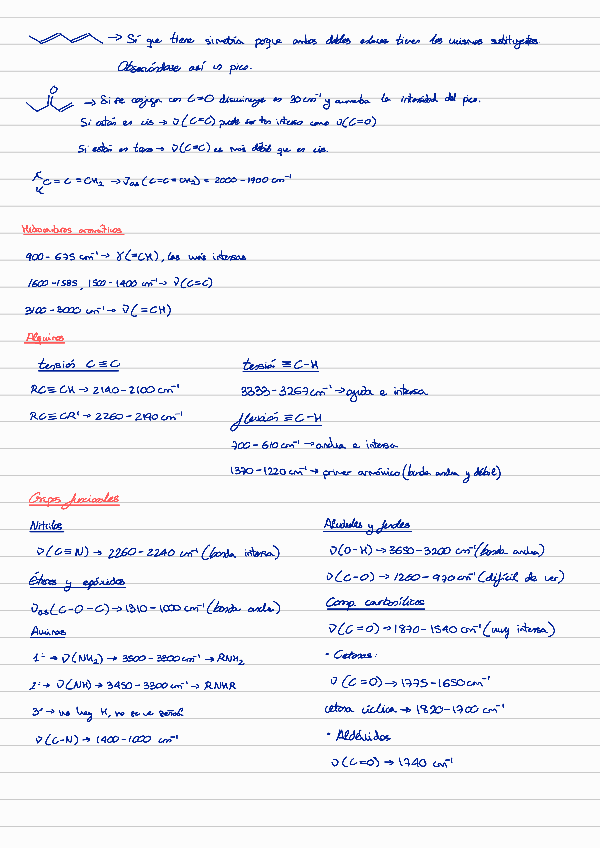 → Sí que tiene simetría porque ambos dobles enlaces tienen los mismos sustituyentes
Observándose así un pico.
O
→ Si se conjuga con C=O disminuye en 30 cm⁻¹ y aumenta la intensidad del pico.
Si están en cis → ν(C=C) puede ser tan intensa como ν(C=O)
Si están en trans → ν(C=C) es más débil que en cis.
C = C = CH₂ → νas (C=C=CH₂) = 2000-1900 cm⁻¹
Hidrocarburos aromáticos
900-675 cm⁻¹ → γ(=CH), las más intensas
1600-1585, 1500-1400 cm⁻¹ → ν(C=C)
3100-3000 cm⁻¹ → ν(=CH)
Alquinos
tensión C≡C
RC≡CH → 2140-2100 cm⁻¹
RC≡CR' → 2260-2190 cm⁻¹
tensión ≡C-H
3333-3267 cm⁻¹ → aguda e intensa
flexión ≡C-H
700-610 cm⁻¹ → ancha e intensa
1370-1220 cm⁻¹ → primer armónico (banda ancha y débil)
Grupos funcionales
Nitrilos
ν(C≡N) → 2260-2240 cm⁻¹ (banda intensa)
Éteres y epóxidos
νas(C-O-C) → 1310-1000 cm⁻¹ (banda ancha)
Aminas
1ª → ν(NH₂) → 3500-3300 cm⁻¹ → RNH₂
2ª → ν(NH) → 3450-3300 cm⁻¹ → RNHR
3ª → no hay H, no se ve señal
ν(C-N) → 1400-1000 cm⁻¹
Alcoholes y fenoles
ν(O-H) → 3650-3200 cm⁻¹ (banda ancha)
ν(C-O) → 1260-970 cm⁻¹ (difícil de ver)
Comp. carbonílicos
ν(C=O) → 1870-1540 cm⁻¹ (muy intensa)
· Cetonas:
ν(C=O) → 1775-1650 cm⁻¹
cetona cíclica → 1820-1700 cm⁻¹
· Aldehídos
ν(C=O) → 1740 cm⁻¹